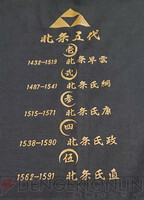 北条五代
壱
1432-1519 北条早雲
弐
1487-1541 北条氏綱
参
1515-1571 北条氏康
四
1538-1590 北条氏政
伍
1562-1591 北条氏直
DENGEKIONLINE